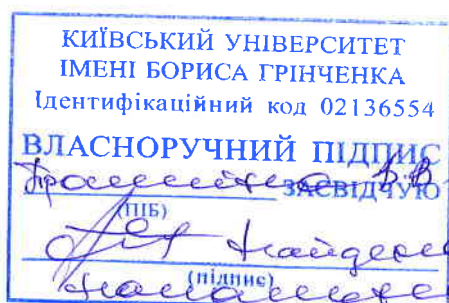 КИЇВСЬКИЙ УНІВЕРСИТЕТ
ІМЕНІ БОРИСА ГРІНЧЕНКА
Ідентифікаційний код 02136554
ВЛАСНОРУЧНИЙ ПІДПИС
В.В.
ЗАСВІДЧУЮ
(ПІБ)
(підпис)